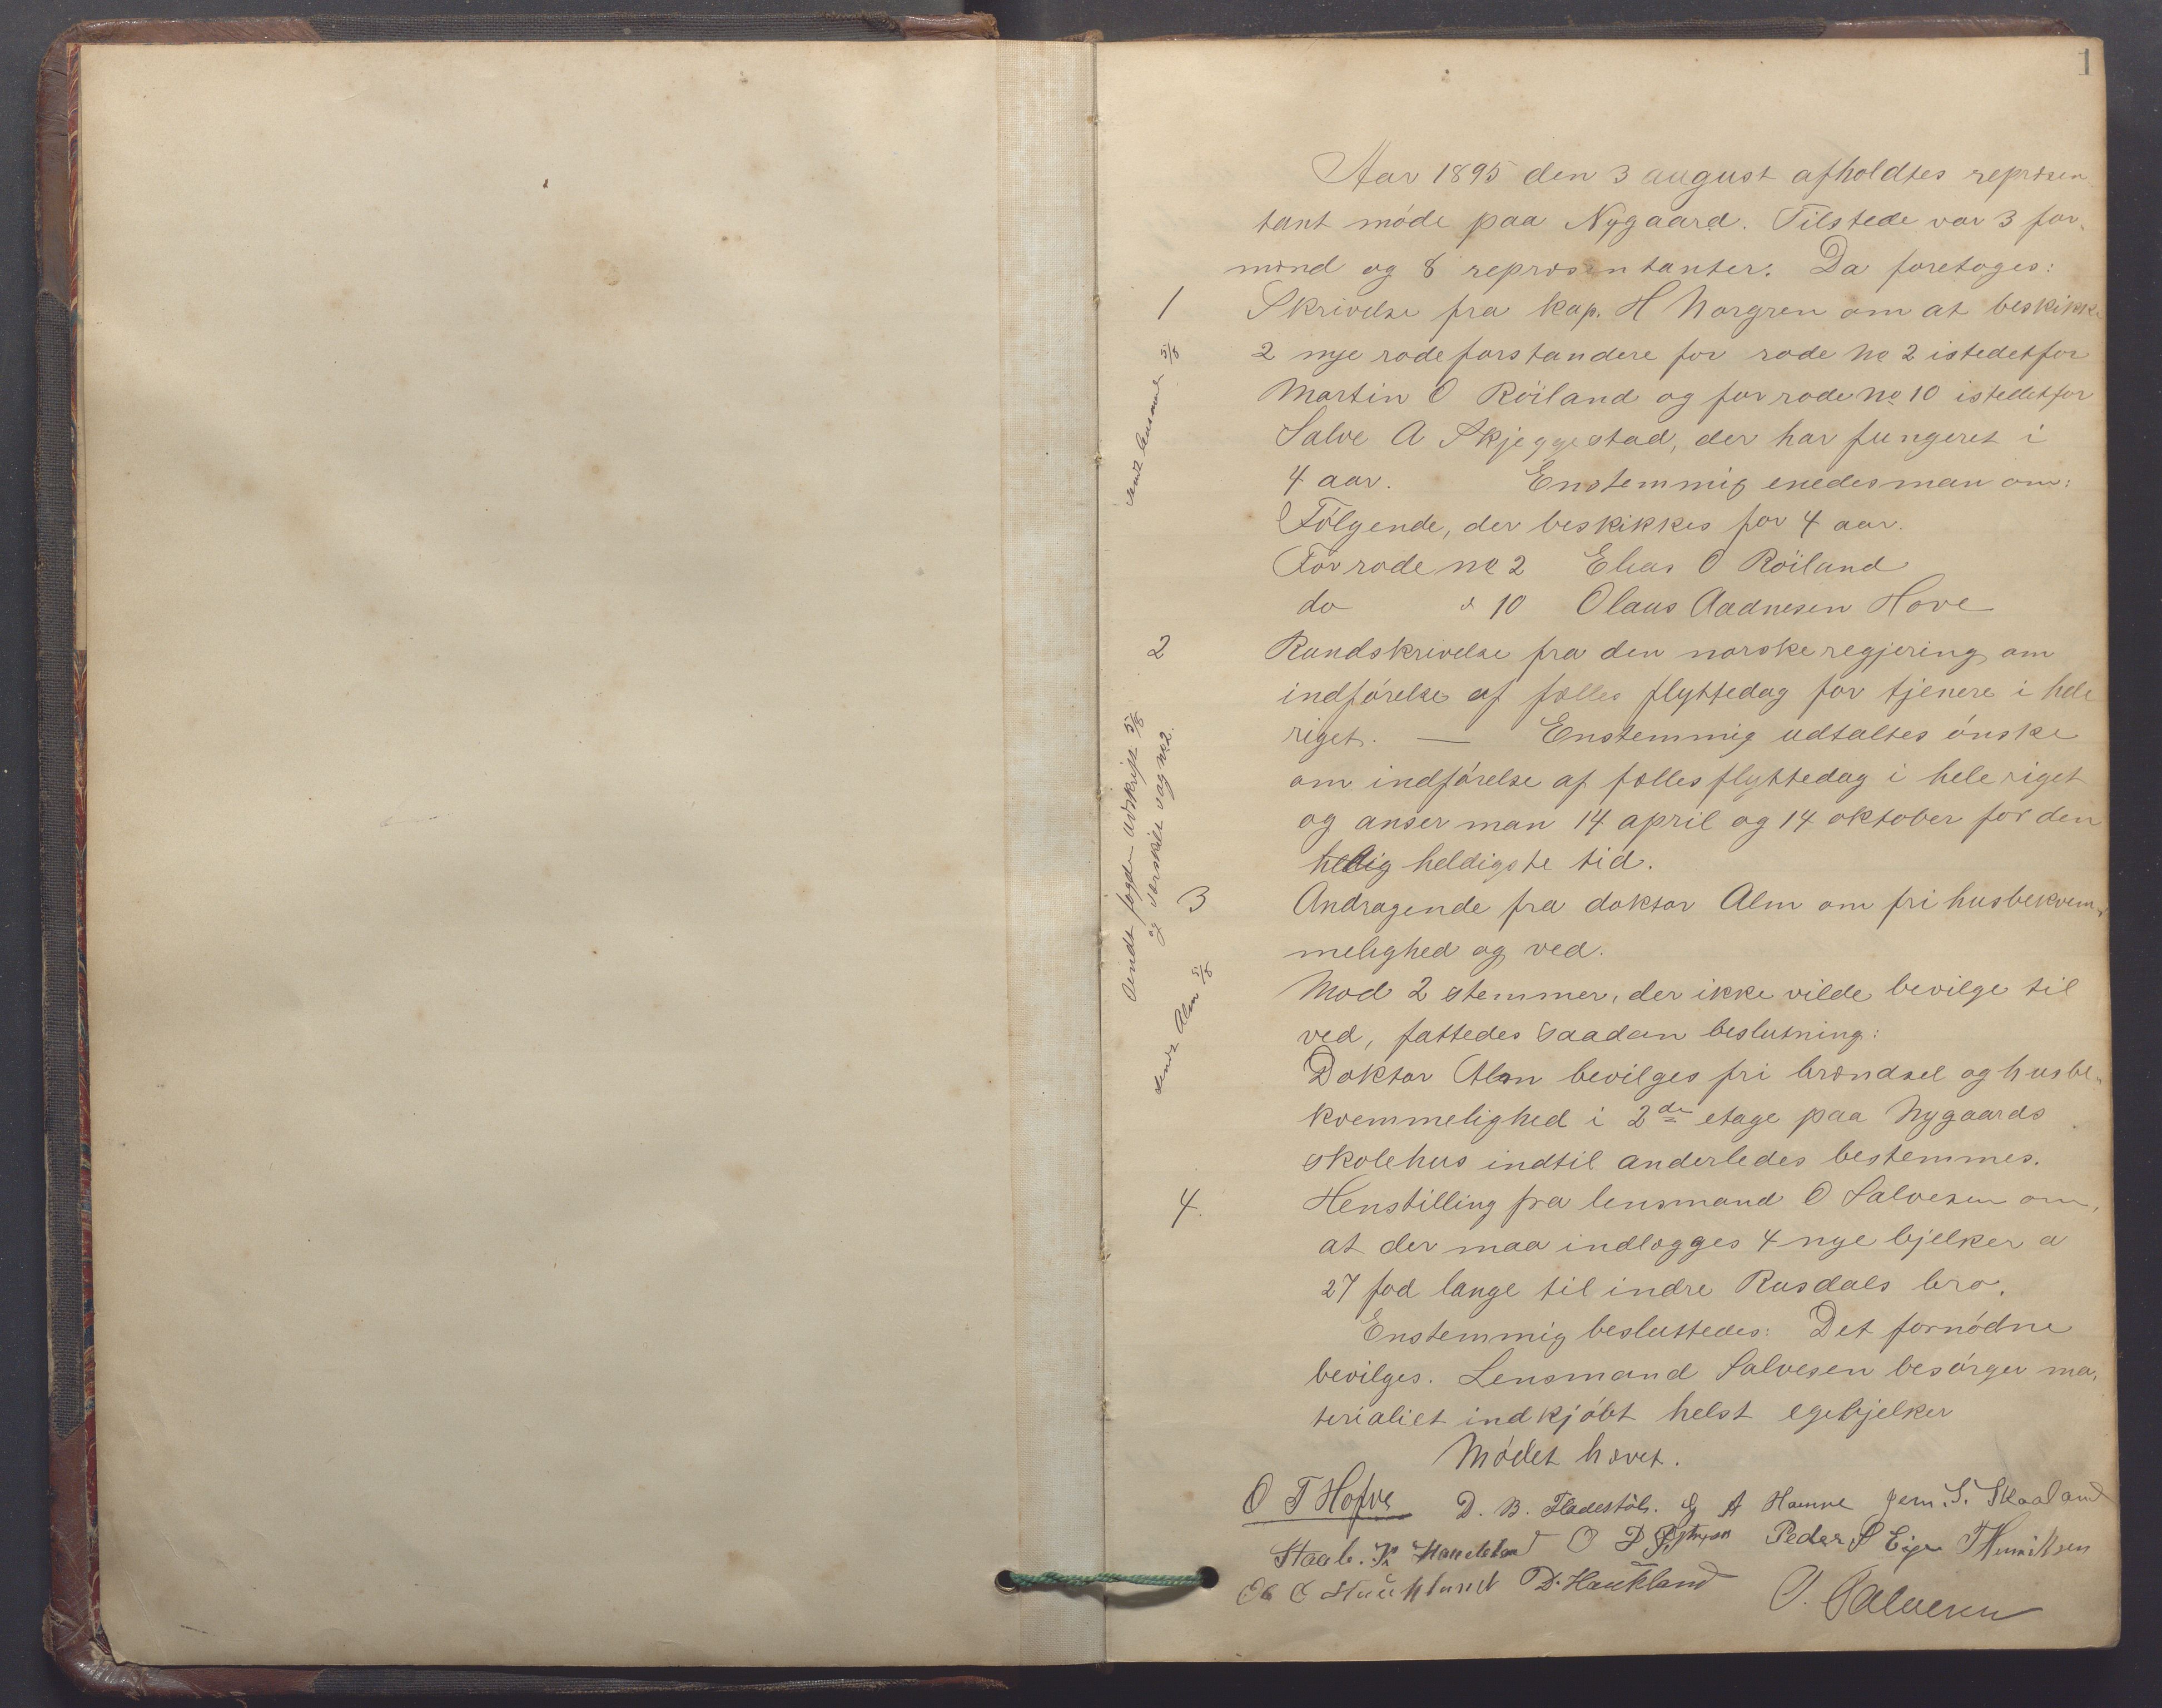 1
Aar 1895 den 3 august afholdtes repræsen
tant møde paa Nygaard. Tilstede var 3 for-
mænd og 8 repræsentanter. Da foretoges:
1 Skrivelse fra kap. H Norgren om at beskikke
2 nye rodeforstandere for rode No 2 istedetfor
Martin O Röiland og for rode No 10 istedetfor
Salve A Skjeggestad, der har fungeret i
4 aar. Enstemmig enedes man om:
Følgende, der beskikkes for 4 aar.
For rode No 2 Elias O Röiland
do " 10 Olaus Aadnesen Hove
sendt lensmd 5/8
2 Rundskrivelse fra den norske regjering om
indførelse af fælles flyttedag for tjenere i hele
riget. — Enstemmig udtaltes ønske
om indførelse af fælles flyttedag i hele riget
og anser man 14 april og 14 oktober for den
heldig heldigste tid.
Sendt fogden udskrift 5/8
og særskilt sag No 2.
3 Andragende fra doktor Alm om fri husbekvem-
melighed og ved.
Mod 2 stemmer, der ikke vilde bevilge til
ved, fattedes saadan beslutning:
Doktor Alm bevilges fri brændsel og husbe-
kvemmelighed i 2de etage paa Nygaards
skolehus indtil anderledes bestemmes.
sendt Alm 5/8
4. Henstilling fra lensmand O Salvesen om,
at der maa indlægges 4 nye bjelker a
27 fod lange til indre Rusdals bro.
Enstemmig besluttedes: Det fornødne
bevilges. Lensmand Salvesen besørger ma-
terialiet indkjøbt helst egebjelker
Mødet hævet.
O T Hofve D. B. Fladestøl. G A Hamre Jern. S. Skaaland
Staale. K O D Peder S Eige T Henriksen
O. O Haukland D. Haukland O. Salvesen